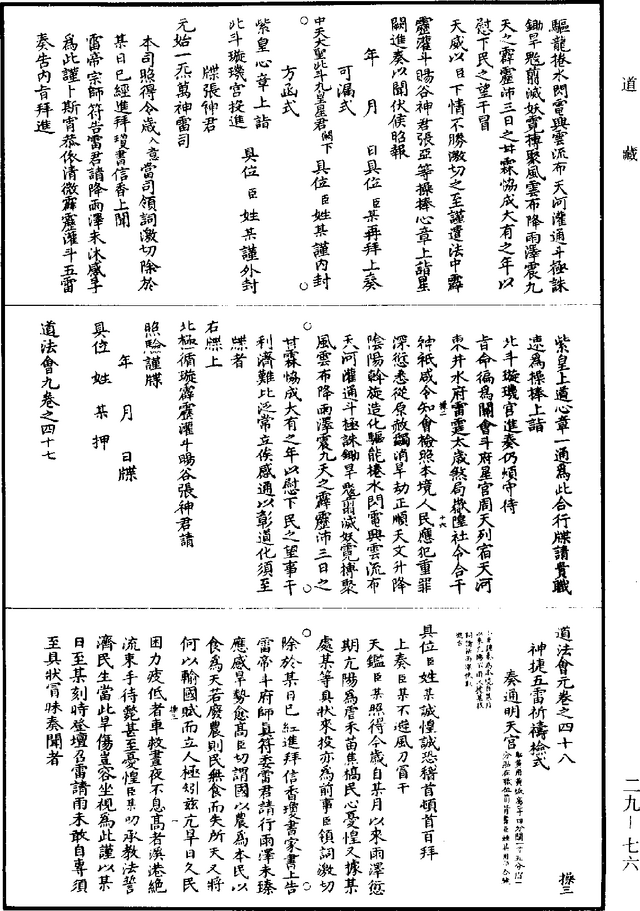 道藏
驅龍捲水閃電興雲流布天河灌通斗極誅
鋤旱魃翦滅妖霓搏聚風雲布降雨澤震九
天之霹靂沛三日之甘霖協成大有之年以
慰下民之望干冒
天威以日下情不勝激切之至謹遣法中霹
靂灌斗暘谷神君張亞等操捧心章上詣星
闕進奏以聞伏俟昭報
年 月 日具位臣姓某再拜上奏
可漏式
中天大聖北斗九皇星君 閤下 具位臣姓某謹內封
方函式
紫皇心章上詣
北斗璇璣宮投進 具位臣姓某謹外封
牒張神君
元始一炁萬神雷司
本司照得今歲入意當司領詞激切除於
某日已經進拜瓊書信香上聞
雷帝宗師符告雷君請降雨澤未沐感孚
為此謹卜斯宵恭依清微霹靂灌斗五雷
奏告內旨拜進
紫皇上道心章一通為此合行牒請貴職
速為操捧上詣
北斗璇璣宮進奏仍煩守待
旨命徧為關會斗府星官周天列宿天河
東井水府雷霆太歲煞局嶽隍社令合干
神祇咸令知會檢照本境人民應犯重罪
深愆悉從原赦蠲消旱劫正順天文升降
陰陽斡旋造化驅龍捲水閃電興雲流布
天河灌通斗極誅鋤旱魃翦滅妖霓搏聚
風雲布降雨澤震九天之霹靂沛三日之
甘霖協成大有之年以慰下民之望事干
利濟難比泛常立俟感通以彰道化須至
牒者
右牒上
北極循璇霹靂灌斗暘谷張神君請
照驗謹牒
年 月 日牒
具位 姓 某 押
道法會九卷之四十七
道法會元卷之四十八
神捷五雷祈禱檢式
奏通明天宮
具位臣姓某誠惶誠恐稽首頓首百拜
上奏臣某不避風刀冒干
天鑑臣某照得今歲自某月以來雨澤愆
期亢陽為虐禾苗焦槁民心憂惶又據某
處某等具狀來投亦為前事臣領詞激切
除於某日已經進拜信香瓊書家書上告
雷帝斗府師真符委雷君請行雨澤未臻
應感旱勢愈高臣切謂國以農為本民以
食為天若廢農則民無食而失所天又將
何以輸國賦而立人極矧茲亢旱日久民
困力疲低者車救晝夜不息高者溪港絕
流束手待斃甚至憂惶臣某叨承教法誓
濟民生當此旱傷豈容坐視為此謹以某
日至某刻時登壇召雷請雨未敢自專須
至具狀冒昧奏聞者
二九－七六
操三